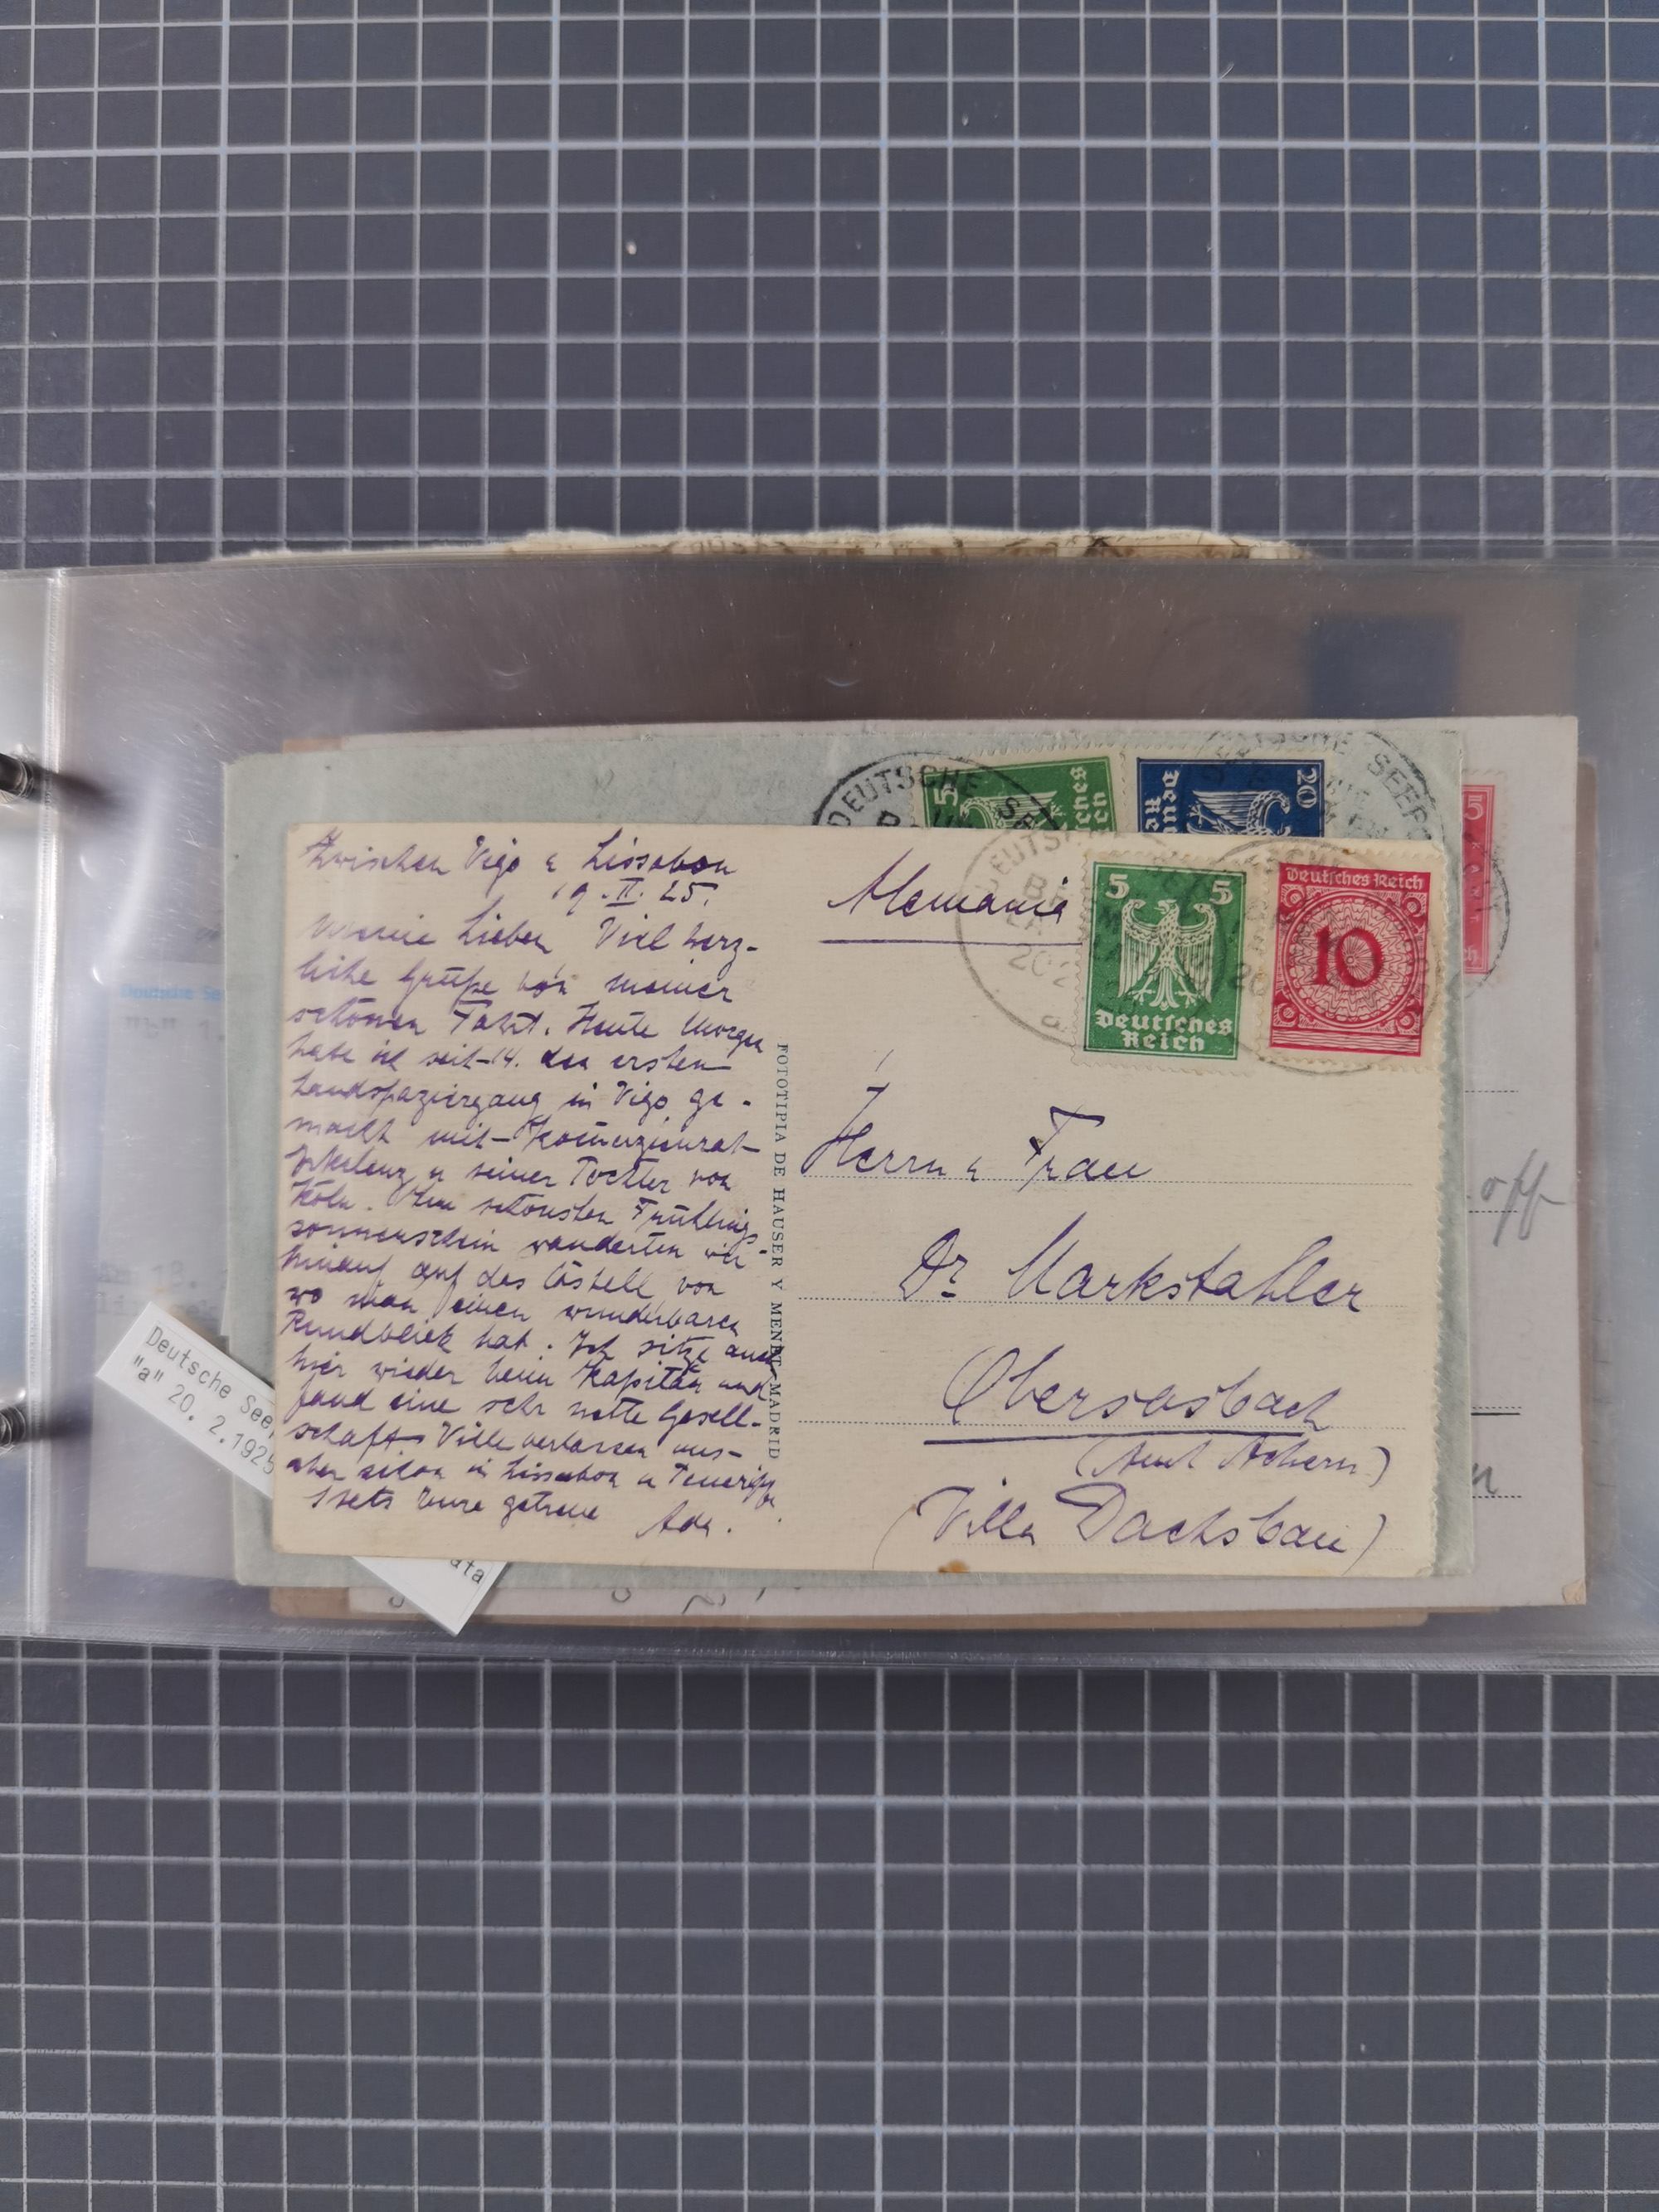 Zwischen Vigo & Lissabon
19.II.25.
Meine Lieben Viel herz-
liche Grüße von meiner
schönen Fahrt. Heute Morgen
habe ich seit 14. den ersten
Landspaziergang in Vigo ge-
macht mit Kommerzienrat
u seiner Tochter von
Köln. Im schönsten Frühlings-
sonnenschein wanderten wir
hinauf auf das Castell von
wo man einen wunderbaren
Rundblick hat. Ich sitze auch
hier wieder beim Kapitän und
fand eine sehr nette Gesell-
schaft. Viele verlassen uns
aber schon in Lissabon u Teneriffa.
Stets Eure getreue Ada.
FOTOTIPIA DE HAUSER Y MENET-MADRID
Alemania
Herrn & Frau
Dr. Markstahler
Obersasbach
(Amt Achern)
(Villa Dachsbau)
5 5
Deutsches
Reich
Deutsches Reich
10
DEUTSCHE
20
DEUTSCHE SEEP
5
20
DEUTSCHE SEEP
5
Deutsche See
"a" 20. 2.1925
ata
Deutsche Se
off
n